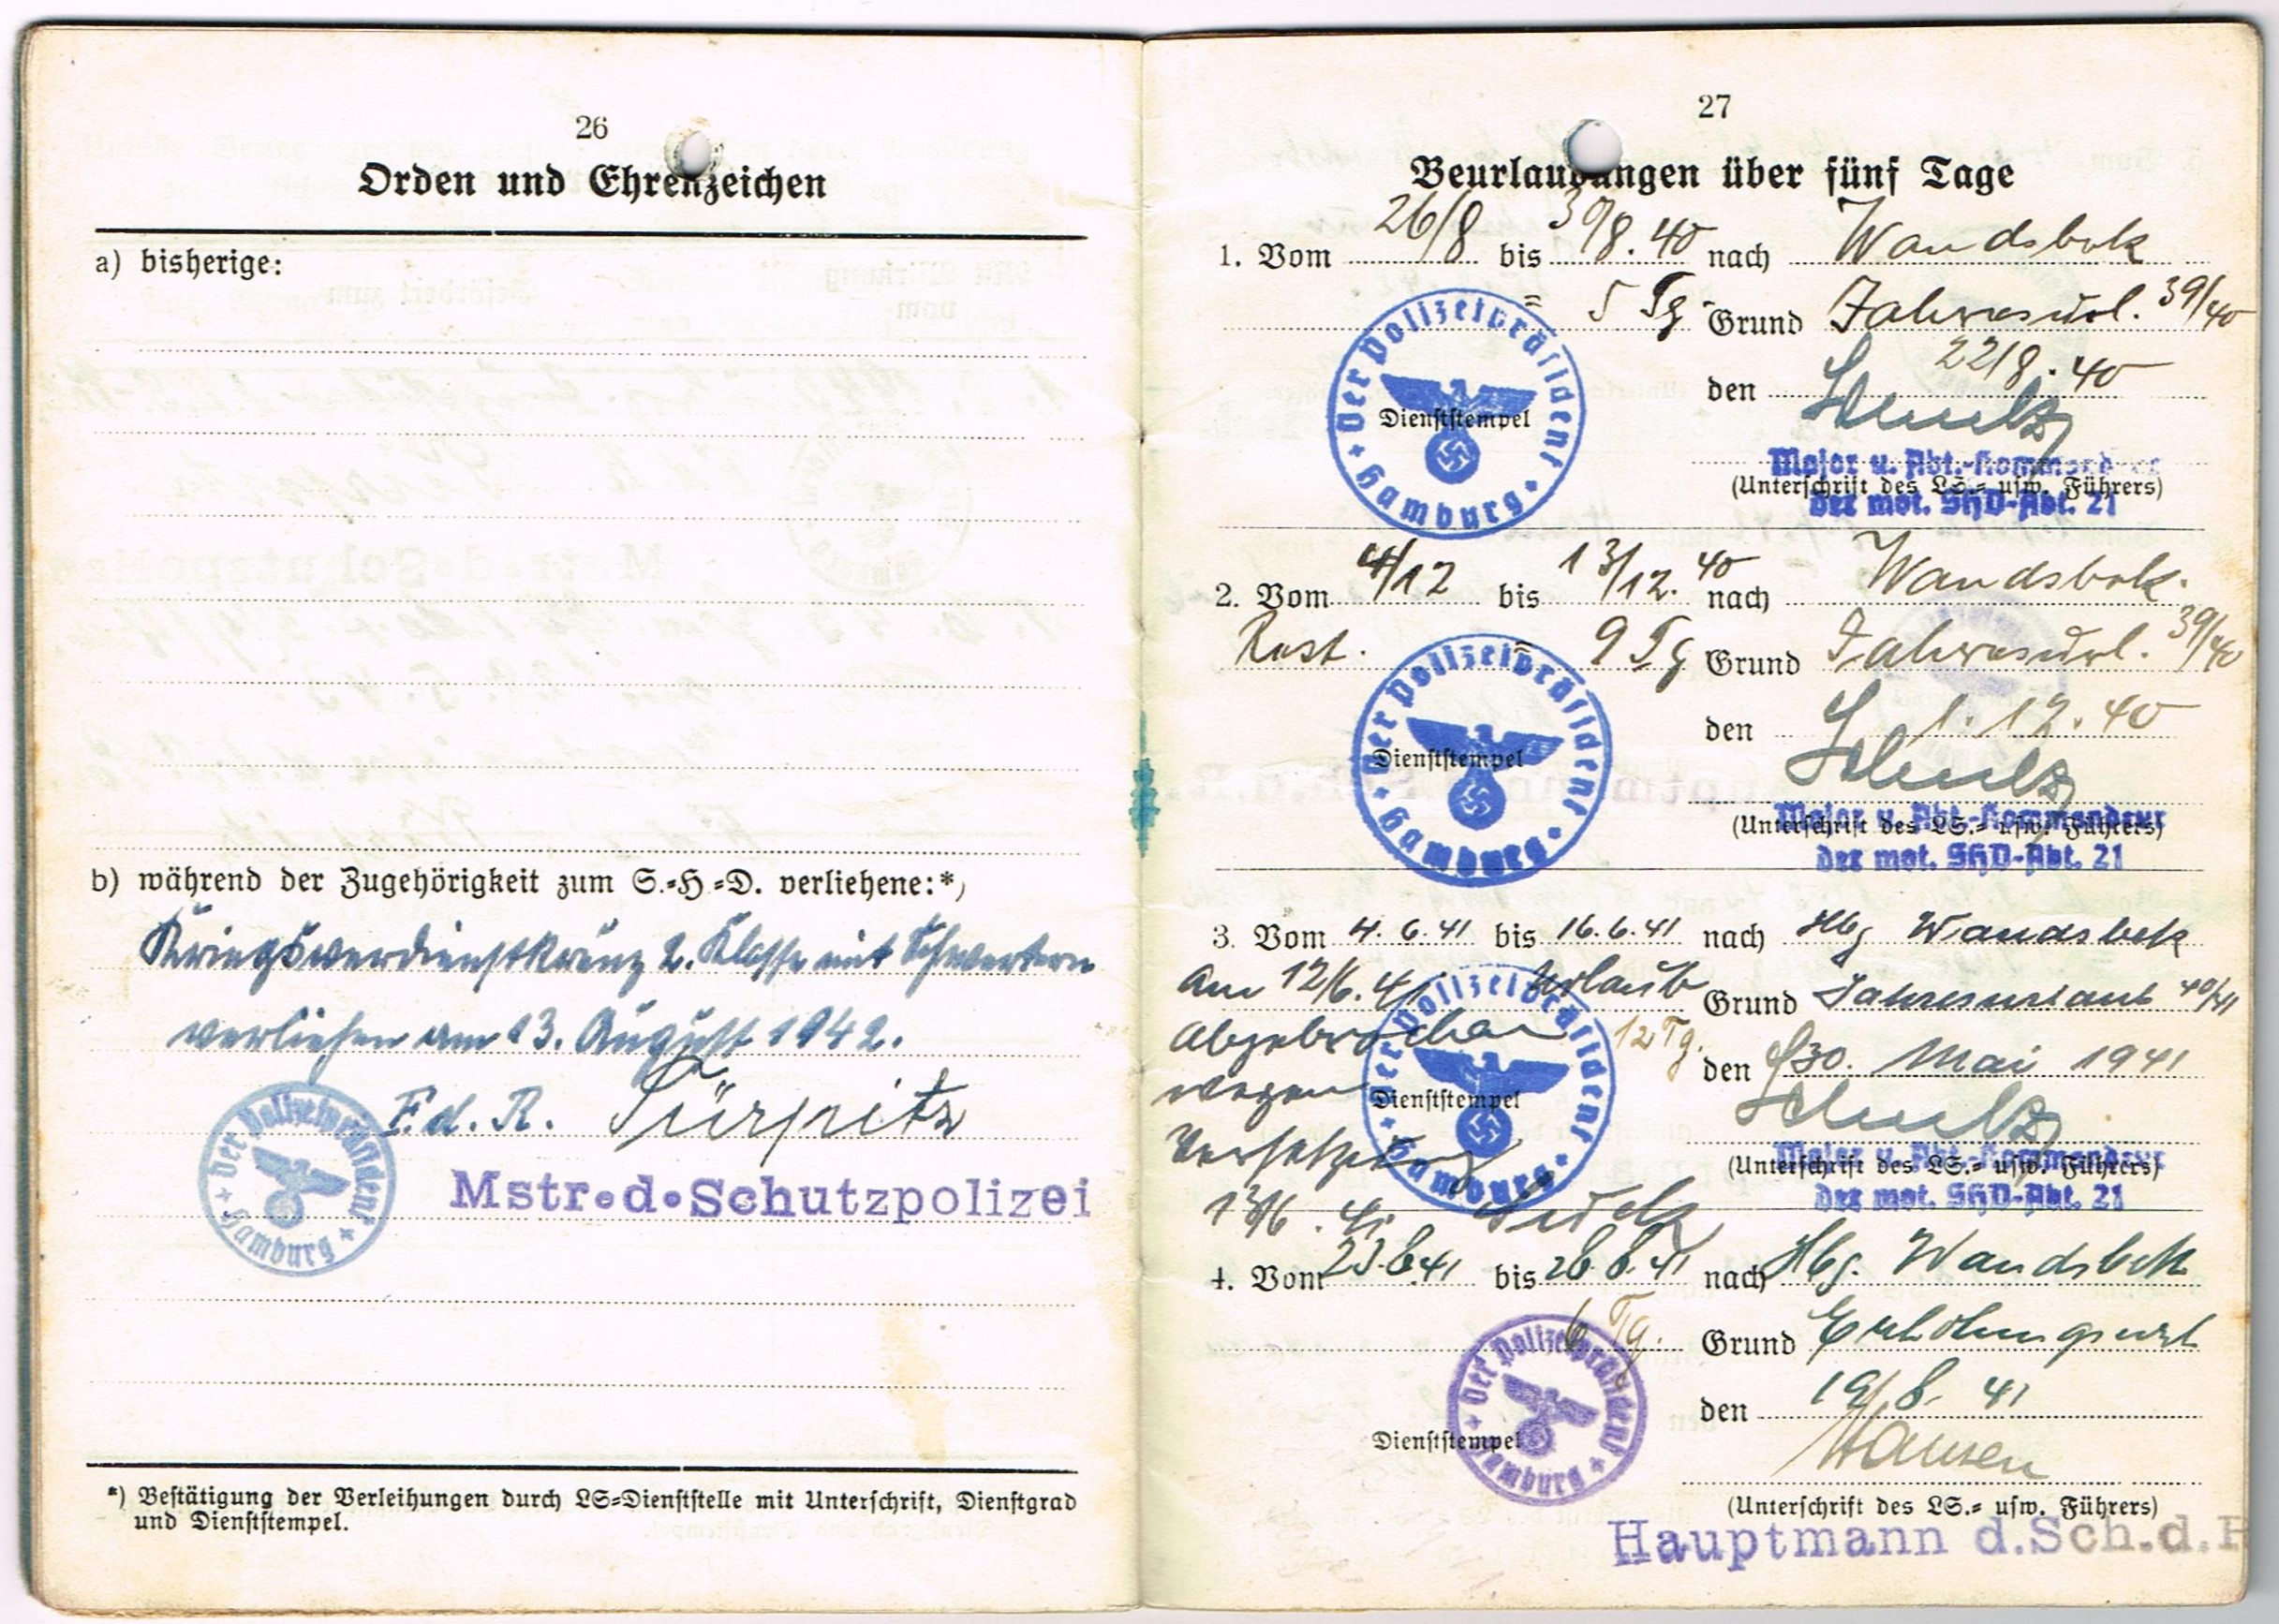 26
Orden und Ehrenzeichen
a) bisherige:
b) während der Zugehörigkeit zum S.=H.=D. verliehene:*)
Kriegsverdienstkreuz 2. Klasse mit Schwertern
verliehen am 13. August 1942.
F. d. R.
Der Polizeipräsident
Hamburg
Mstr.d.Schutzpolizei
*) Bestätigung der Verleihungen durch LS=Dienststelle mit Unterschrift, Dienstgrad
und Dienststempel.
27
Beurlaubungen über fünf Tage
1. Vom 26/8 bis 30/8.40 nach Wandsbek
= 5 Tg Grund Jahresurl. 39/40
den 22/8.40
Der Polizeipräsident
Hamburg
Dienststempel
Schulz
Major u. Abt.-Kommandeur
(Unterschrift des LS.= usw. Führers)
der mot. SHD-Abt. 21
2. Vom 4/12 bis 13/12.40 nach Wandsbek.
Rest. = 9 Tg Grund Jahresurl. 39/40
den 1.12.40
Der Polizeipräsident
Hamburg
Dienststempel
Schulz
Major u. Abt.-Kommandeur
(Unterschrift des LS.= usw. Führers)
der mot. SHD-Abt. 21
3. Vom 4.6.41 bis 16.6.41 nach Hbg Wandsbek
Am 12/6.41 Urlaub Grund Jahresurlaub 40/41
abgebrochen 12 Tg. den 30. Mai 1941
wegen
Der Polizeipräsident
Hamburg
Dienststempel
Schulz
Versetzung
Major u. Abt.-Kommandeur
(Unterschrift des LS.= usw. Führers)
der mot. SHD-Abt. 21
13/6.41
4. Vom 23.8.41 bis 28.8.41 nach Hbg. Wandsbek
6 Tg. Grund Erholungsurl
den 19/8. 41
Der Polizeipräsident
Hamburg
Dienststempel
Hansen
(Unterschrift des LS.= usw. Führers)
Hauptmann d.Sch.d.R